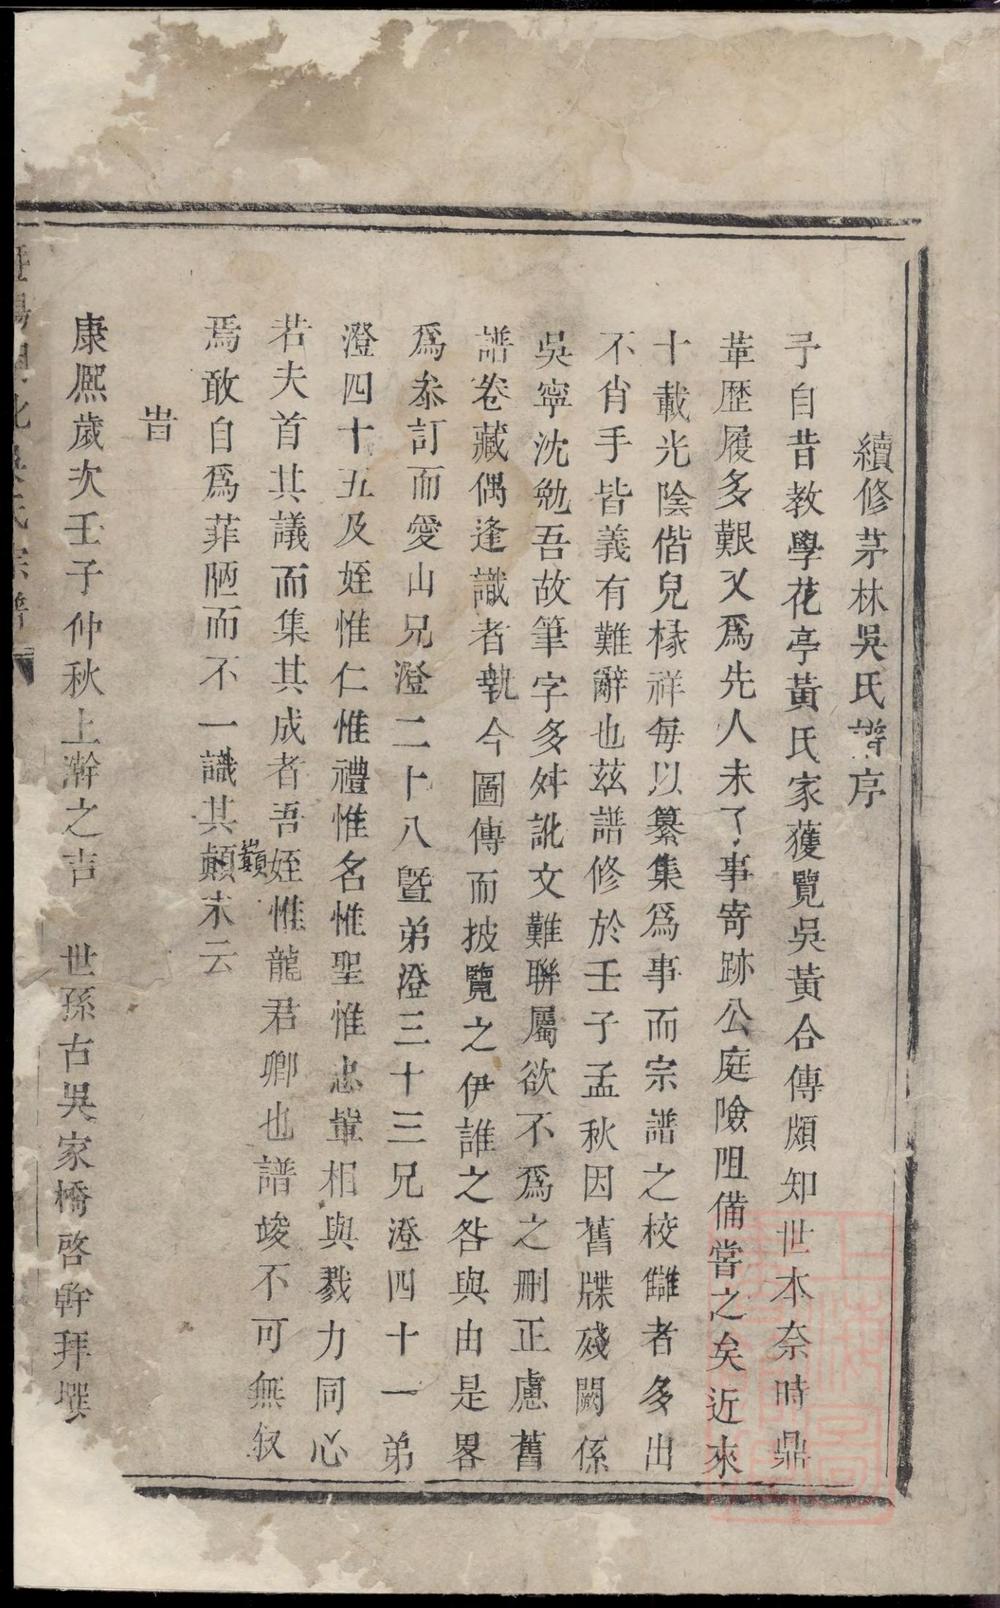 續修茅林吳氏譜序
予自昔教學花亭黃氏家獲覽吳黃合傳頗知世本奈時鼎
革歷履多艱又爲先人未了事寄跡公庭險阻備嘗之矣近來
十載光陰偕兒椽祥每以纂集爲事而宗譜之校讎者多出
不肖手皆義有難辭也茲譜修於壬子孟秋因舊牒殘闕係
吳寧沈勉吾故筆字多舛訛文難聯屬欲不爲之刪正慮舊
譜卷藏偶逢識者執今圖傳而披覽之伊誰之咎與由是畧
爲叅訂而愛山兄澄二十八暨弟澄三十三兄澄四十一弟
澄四十五及姪惟仁惟禮惟名惟聖惟忠輩相與戮力同心
若夫首其議而集其成者吾姪惟龍君卿也譜竣不可無叙
焉敢自爲菲陋而不一識其顛末云
巔
旹
康熙歲次壬子仲秋上澣之吉 世孫古吳家橋啓幹拜撰
吳氏宗譜